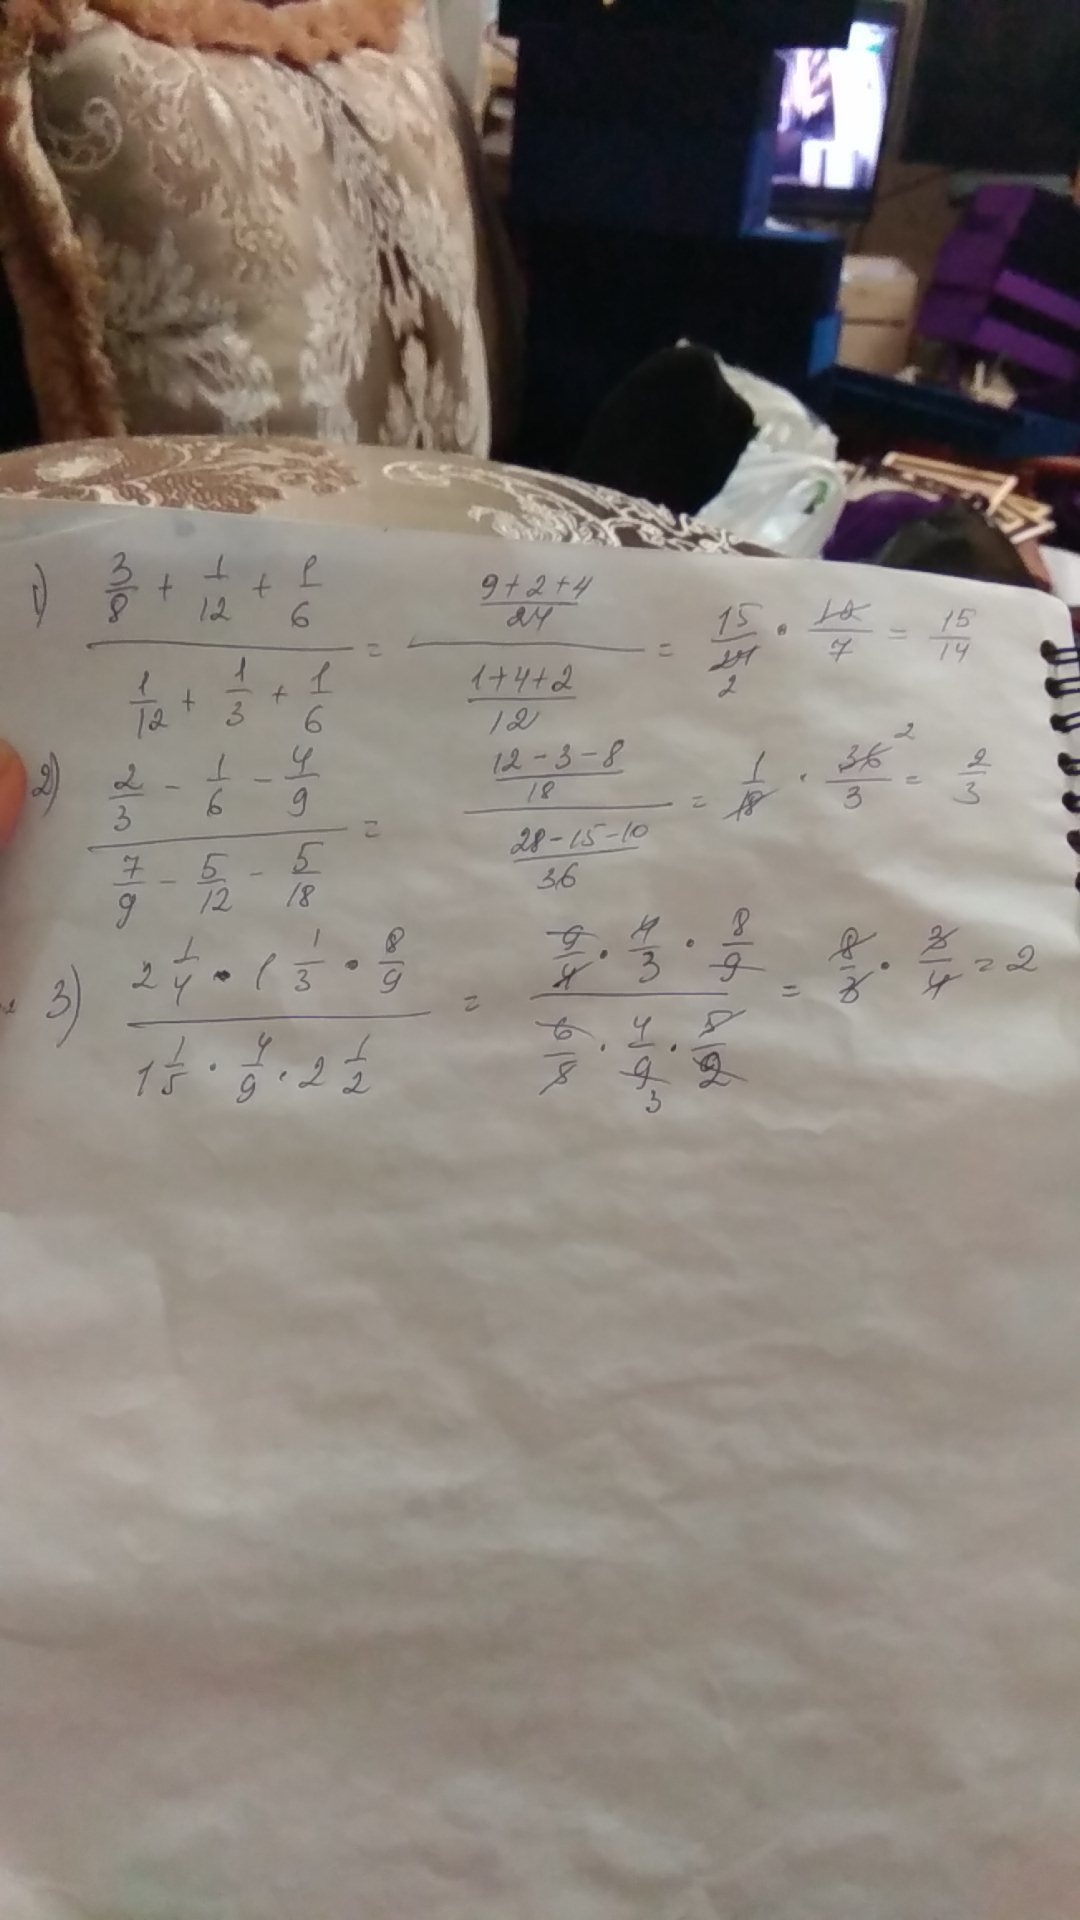 1) (3/8 + 1/12 + 1/6) / (1/12 + 1/3 + 1/6) = ((9+2+4)/24) / ((1+4+2)/12) = 15/24 2 · 12/7 = 15/14
2) (2/3 - 1/6 - 4/9) / (7/9 - 5/12 - 5/18) = ((12-3-8)/18) / ((28-15-10)/36) = 1/18 · 36 2/3 = 2/3
3) (2 1/4 · 1 1/3 · 8/9) / (1 1/5 · 4/9 · 2 1/2) = (9/4 · 4/3 · 8/9) / (6/5 · 4/9 3 · 5/2) = 8/3 · 3/4 = 2